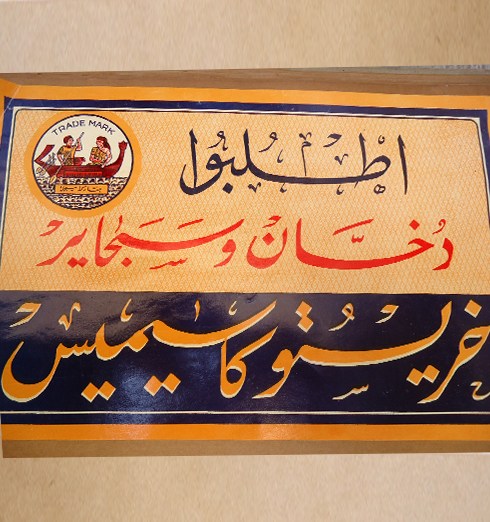 TRADE MARK
اطلبوا
دخّان وسجاير
خريستو كاسيميس